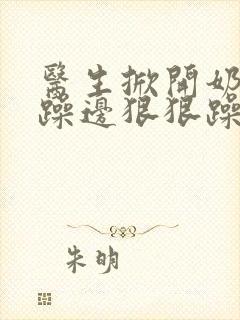 醫生掀開奶
躁邊狠狠躁
朱明